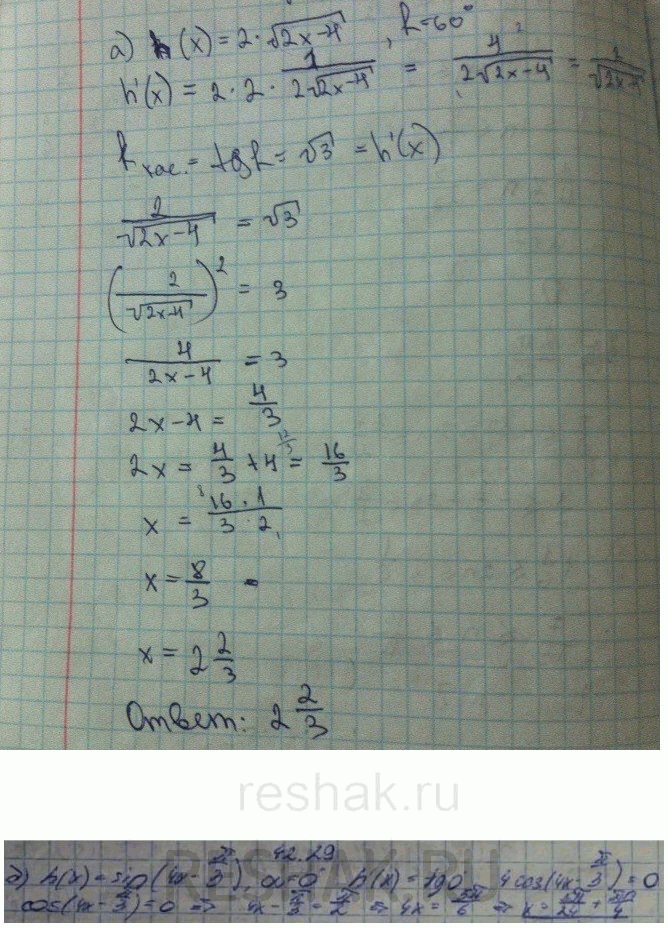 а) h(x) = 2·√(2x-4), k=60°
h'(x) = 2·2·1/(2√(2x-4)) = 4/(2√(2x-4)) = 2/√(2x-4)
k кас. = tg k = √3 = h'(x)
2/√(2x-4) = √3
(2/√(2x-4))² = 3
4/(2x-4) = 3
2x-4 = 4/3
2x = 4/3 + 4 = 16/3
x = (16·1)/(3·2)
x = 8/3
x = 2 2/3
Ответ: 2 2/3
reshak.ru
42.29
б) h(x) = sin(4x - π/3), α=0° h'(x) = tg0° 4cos(4x - π/3) = 0
cos(4x - π/3) = 0 ⇒ 4x - π/3 = π/2 ⇒ 4x = 5π/6 ⇒ x = 5π/24 + πn/4